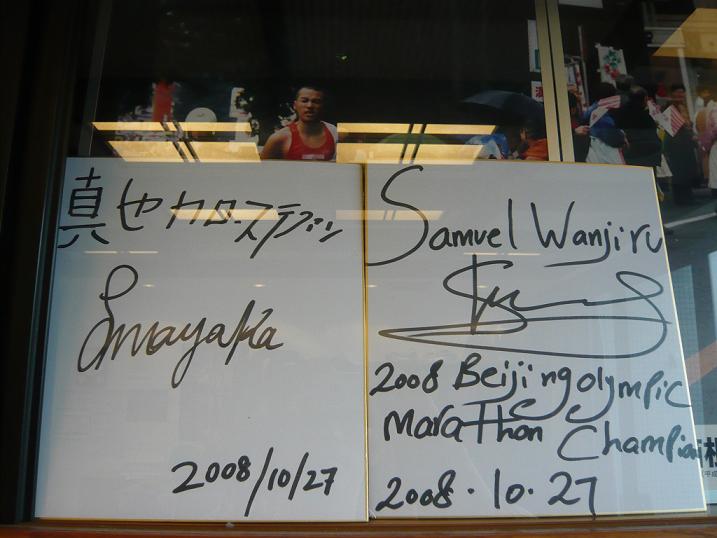 真也加ステファン
Smayaka
2008/10/27
Samuel Wanjiru
2008 Beijing olympic
Marathon Champion
2008.10.27